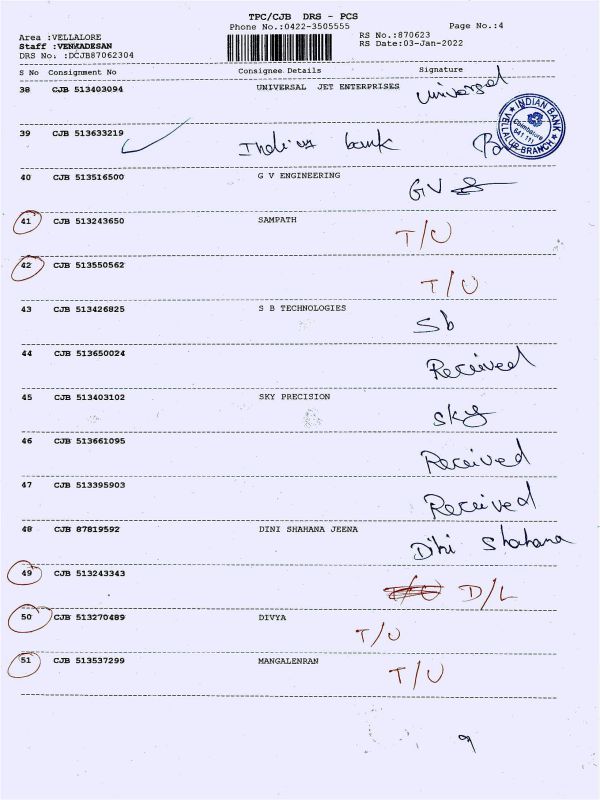 TPC/CJB DRS - PCS
Phone No.:0422-3505555
Page No.:4
Area :VELLALORE
RS No.:870623
Staff :VENKADESAN
RS Date:03-Jan-2022
DRS No. :DCJB87062304
S No Consignment No Consignee Details Signature
38 CJB 513403094 UNIVERSAL JET ENTERPRISES Universal
39 CJB 513633219 Indian bank
INDIAN BANK
Coimbatore
641 111
VELLALUR-BRANCH
40 CJB 513516500 G V ENGINEERING GV
41 CJB 513243650 SAMPATH T/U
42 CJB 513550562 T/U
43 CJB 513426825 S B TECHNOLOGIES Sb
44 CJB 513650024 Received
45 CJB 513403102 SKY PRECISION sky
46 CJB 513661095 Received
47 CJB 513395903 Received
48 CJB 87819592 DINI SHAHANA JEENA Dini Shahana
49 CJB 513243343 T/U D/L
50 CJB 513270489 DIVYA T/U
51 CJB 513537299 MANGALENRAN T/U